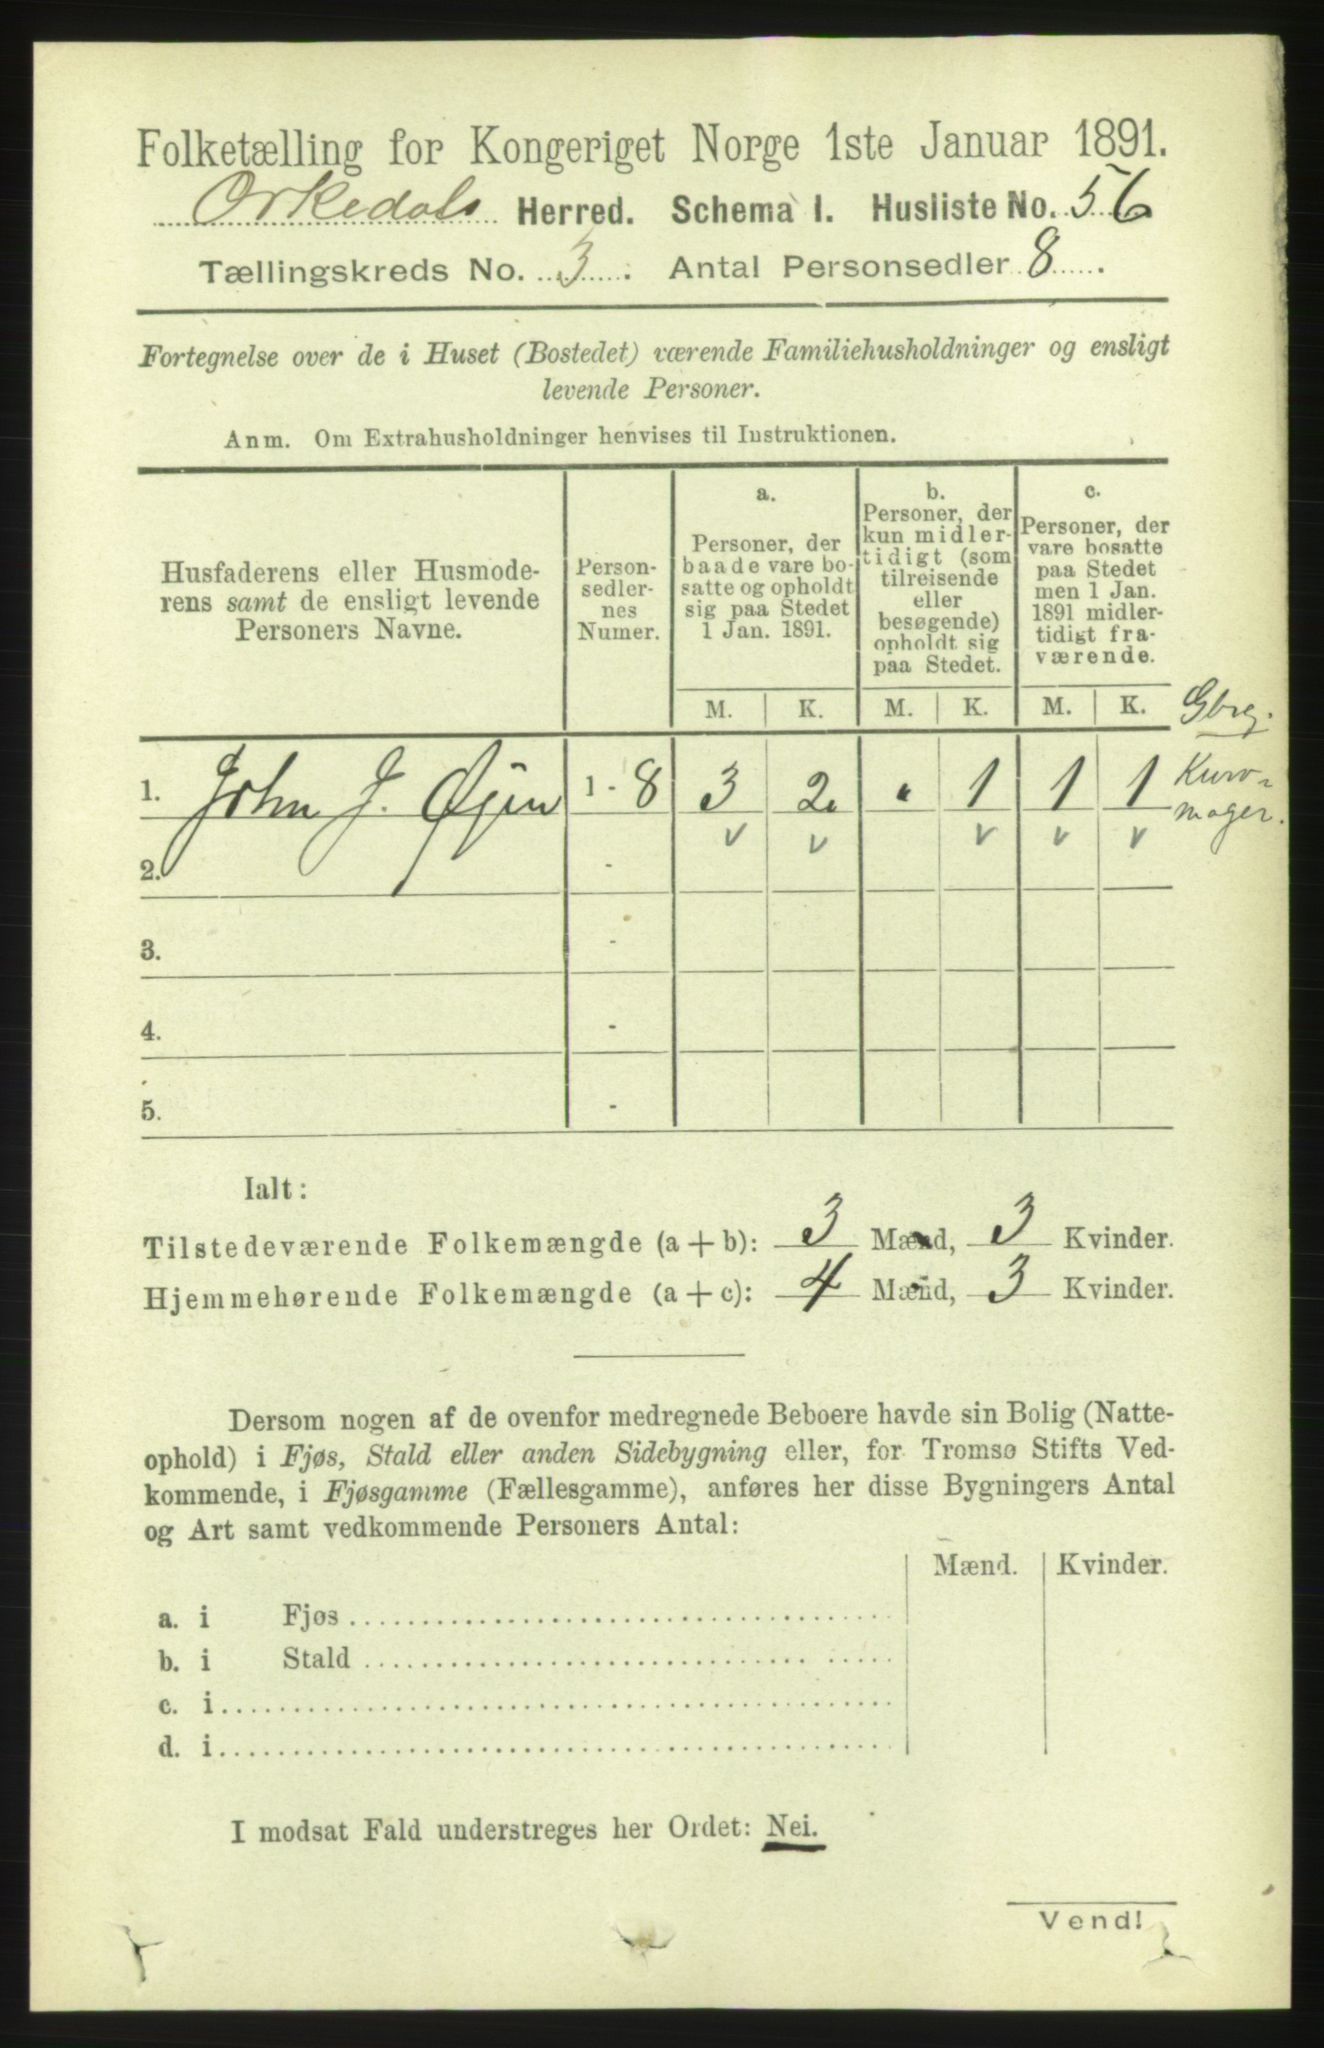 Folketælling for Kongeriget Norge 1ste Januar 1891.
Orkedals Herred. Schema I. Husliste No. 56
Tællingskreds No. 3. Antal Personsedler 8.
Fortegnelse over de i Huset (Bostedet) værende Familiehusholdninger og ensligt
levende Personer.
Anm. Om Extrahusholdninger henvises til Instruktionen.
Husfaderens eller Husmode-
rens samt de ensligt levende
Personers Navne.
Person-
sedler-
nes
Numer.
a.
Personer, der
baade vare bo-
satte og opholdt
sig paa Stedet
1 Jan. 1891.
b.
Personer, der
kun midler-
tidigt (som
tilreisende
eller
besøgende)
opholdt sig
paa Stedet.
c.
Personer, der
vare bosatte
paa Stedet
men 1 Jan.
1891 midler-
tidigt fra-
værende.
M. K. M. K. M. K.
Gbrg.
1. John J. Øjen 1 - 8 3 2 • 1 1 1
Kurv-
mager.
v v v v v
2. -
3. -
4. -
5. -
Ialt:
Tilstedeværende Folkemængde (a + b): 3 Mænd, 3 Kvinder.
Hjemmehørende Folkemængde (a + c): 4 Mænd, 3 Kvinder.
Dersom nogen af de ovenfor medregnede Beboere havde sin Bolig (Natte-
ophold) i Fjøs, Stald eller anden Sidebygning eller, for Tromsø Stifts Ved-
kommende, i Fjøsgamme (Fællesgamme), anføres her disse Bygningers Antal
og Art samt vedkommende Personers Antal:
Mænd. Kvinder.
a. i Fjøs
b. i Stald
c. i
d. i
I modsat Fald understreges her Ordet: Nei.
Vend!